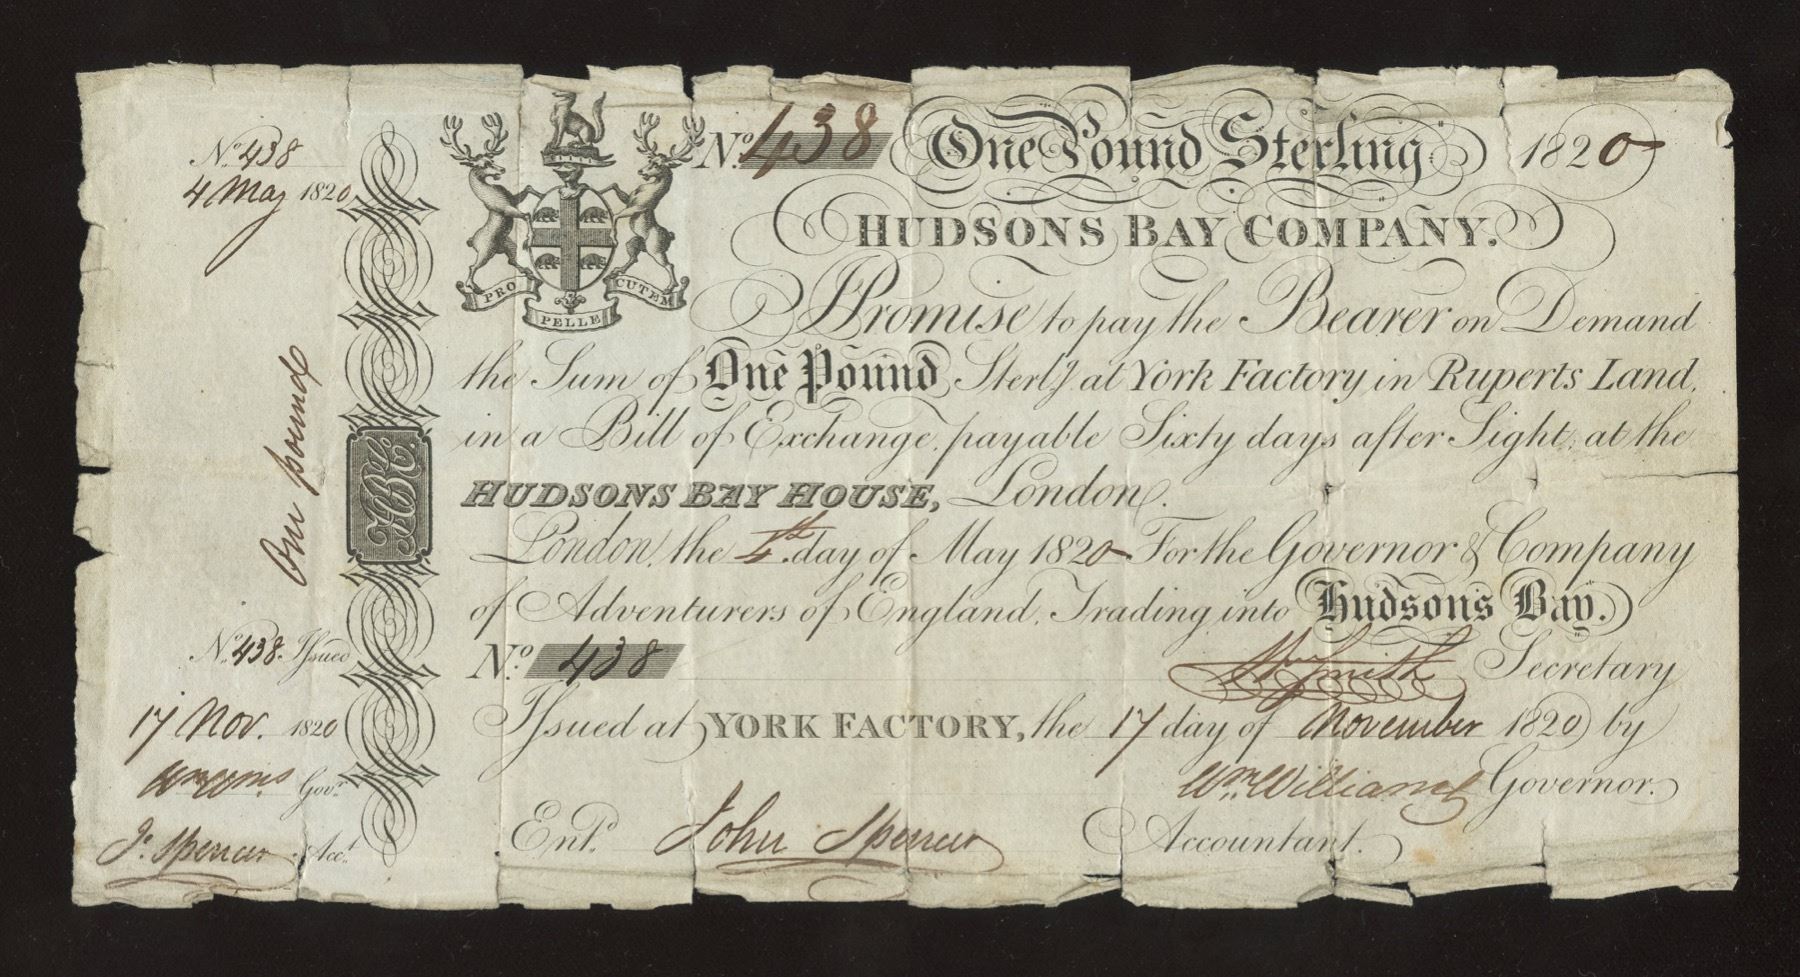 No. 438
4 May 1820
One pound
HBC
No. 438. Issued
17 Nov. 1820
Wm Wms Govr.
J. Spencer Acct.
PRO PELLE CUTEM
No. 438 One Pound Sterling 1820
HUDSONS BAY COMPANY.
I Promise to pay the Bearer on Demand
the Sum of One Pound Sterlg. at York Factory in Ruperts Land,
in a Bill of Exchange, payable Sixty days after Sight, at the
HUDSONS BAY HOUSE, London.
London, the 4th. day of May 1820 For the Governor & Company
of Adventurers of England, Trading into Hudsons Bay.
No. 438 Wm Smith Secretary
Issued at YORK FACTORY, the 17 day of November 1820 by
Wm. Williams Governor.
Entd. John Spencer Accountant.